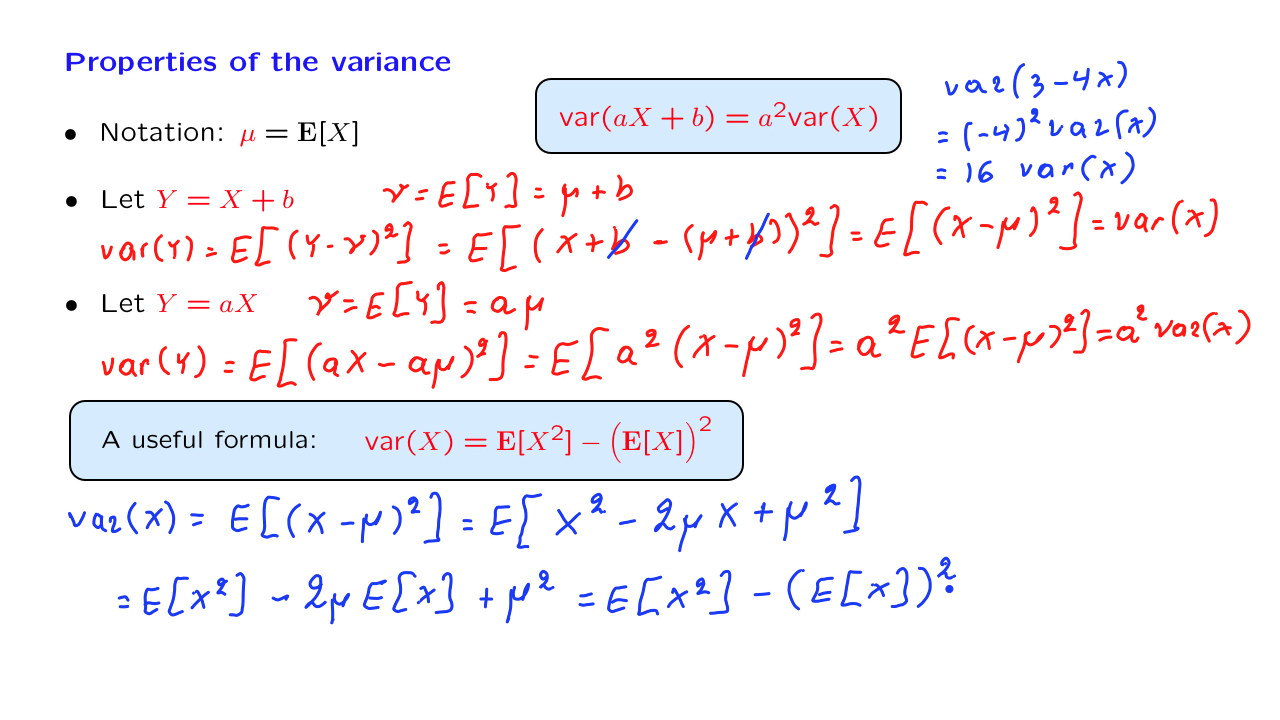 Properties of the variance
• Notation: μ = E[X]
var(aX + b) = a²var(X)
var(3 − 4x)
= (−4)² var(x)
= 16 var(x)
• Let Y = X + b
ν = E[Y] = μ + b
var(Y) = E[(Y − ν)²] = E[(x + b − (μ + b))²] = E[(x − μ)²] = var(x)
• Let Y = aX
ν = E[Y] = aμ
var(Y) = E[(ax − aμ)²] = E[a²(x − μ)²] = a² E[(x − μ)²] = a² var(x)
A useful formula: var(X) = E[X²] − (E[X])²
var(x) = E[(x − μ)²] = E[x² − 2μx + μ²]
= E[x²] − 2μE[x] + μ² = E[x²] − (E[x])².